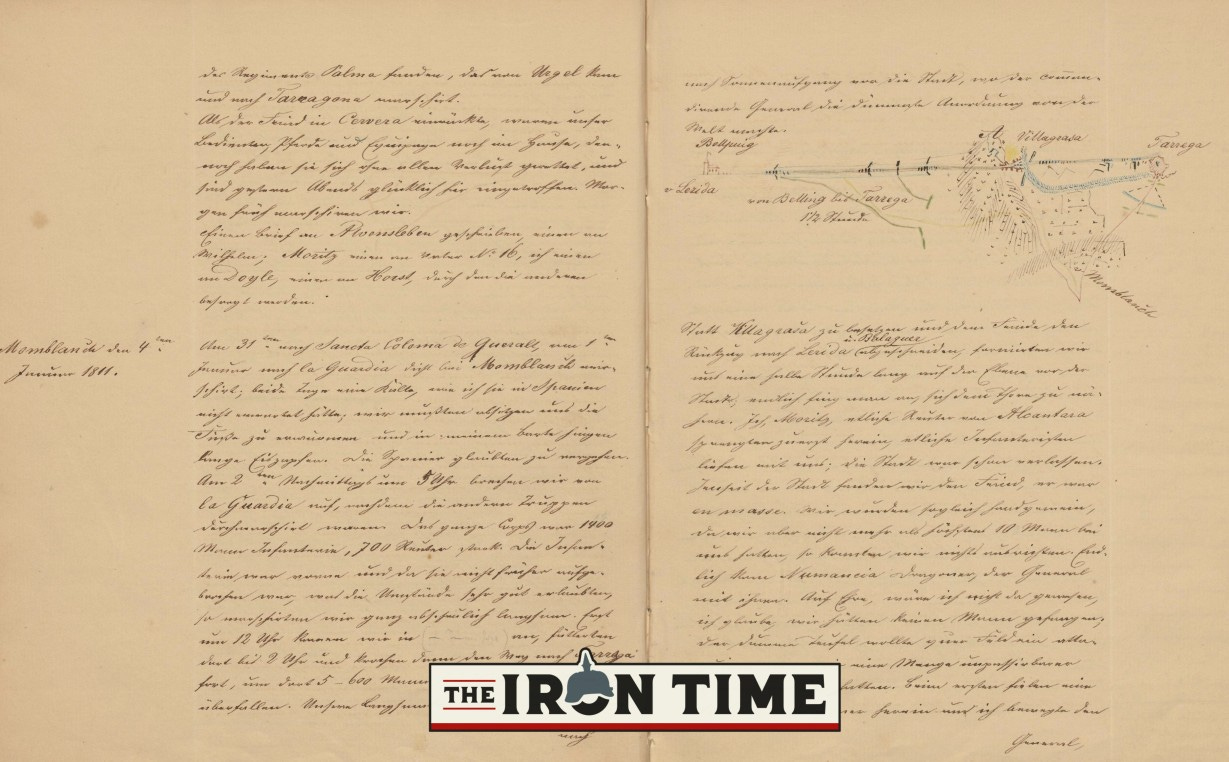 des Regiments Palma fanden, das von Urgel kam
und nach Tarragona marschirt.
Als der Feind in Cervera einrückte, waren unser
Bedienten, Pferde und Equipage noch im Hause, den-
noch haben sie sich ohne allen Verlust gerettet, und
sind gestern Abends glücklich hier eingetroffen. Mor-
gen früh marschiren wir.
Einen Brief an Alvensleben geschrieben, einen an
Wilhelm; Moritz einen an Vater No 16, ich einen
an Doyle, einen an Horst, durch den die anderen
besorgt werden.
Momblanch den 4ten
Januar 1811.
Am 31ten nach Sancta Coloma de Queralt, am 1ten
Januar nach la Guardia dicht bei Momblanch mar-
schirt; beide Tage eine Kälte, wie ich sie in Spanien
nicht erwartet hätte; wir mußten absitzen uns die
Füße zu erwärmen und in meinem Barte hingen
lange Eiszapfen. Die Spanier glaubten zu vergehen.
Am 2ten Nachmittags um 5 Uhr brachen wir von
la Guardia auf, nachdem die andern Truppen
durchmarschirt waren. Das ganze Corps war 1400
Mann Infanterie, 700 Reuter stark. Die Infan-
terie war vorne und da sie nicht früher aufge-
brochen war, was die Umstände sehr gut erlaubten,
so marschirten wir ganz abscheulich langsam. Erst
um 12 Uhr kamen wir in an, fütterten
dort bis 2 Uhr und brachen dann den Weg nach Tarrega
fort, um dort 5-600 Mann
überfallen. Unsere Langsam
nach
nach Sonnenaufgang vor die Stadt, wo der comman-
dirende General die dümmste Anordnung von der
Welt machte.
Bellpuig
A.
Villagrasa
Tarrega
v Lerida
von Bellpuig bis Tarrega
1½ Stunde
Momblanch
Statt Villagrasa zu besetzen und dem Feinde den
u. Balaguer
Rückzug nach Lerida abzuschneiden, formirten wir
uns eine halbe Stunde lang auf der Ebene vor der
Stadt; endlich fing man an, sich dem Thore zu nä-
hern. Ich, Moritz, etliche Reuter von Alcantara
sprengten zuerst herein, etliche Infanteristen
liefen mit uns; die Stadt war schon verlassen.
Jenseit der Stadt fanden wir den Feind, er war
en masse. Wir wurden sogleich handgemein,
da wir aber nicht mehr als höchstens 10 Mann bei
uns hatten, so konnten wir nichts ausrichten. End-
lich kam Numancia Dragoner, der General
mit ihnen. Auf Ehre, wäre ich nicht da gewesen,
ich glaube, wir hätten keinen Mann gefangen,
der dumme Teufel wollte quer Feld ein atta-
eine Menge unpassirbarer
hatten. Beim ersten fielen eine
herein und ich bewegte den
General,
THE IRON TIME